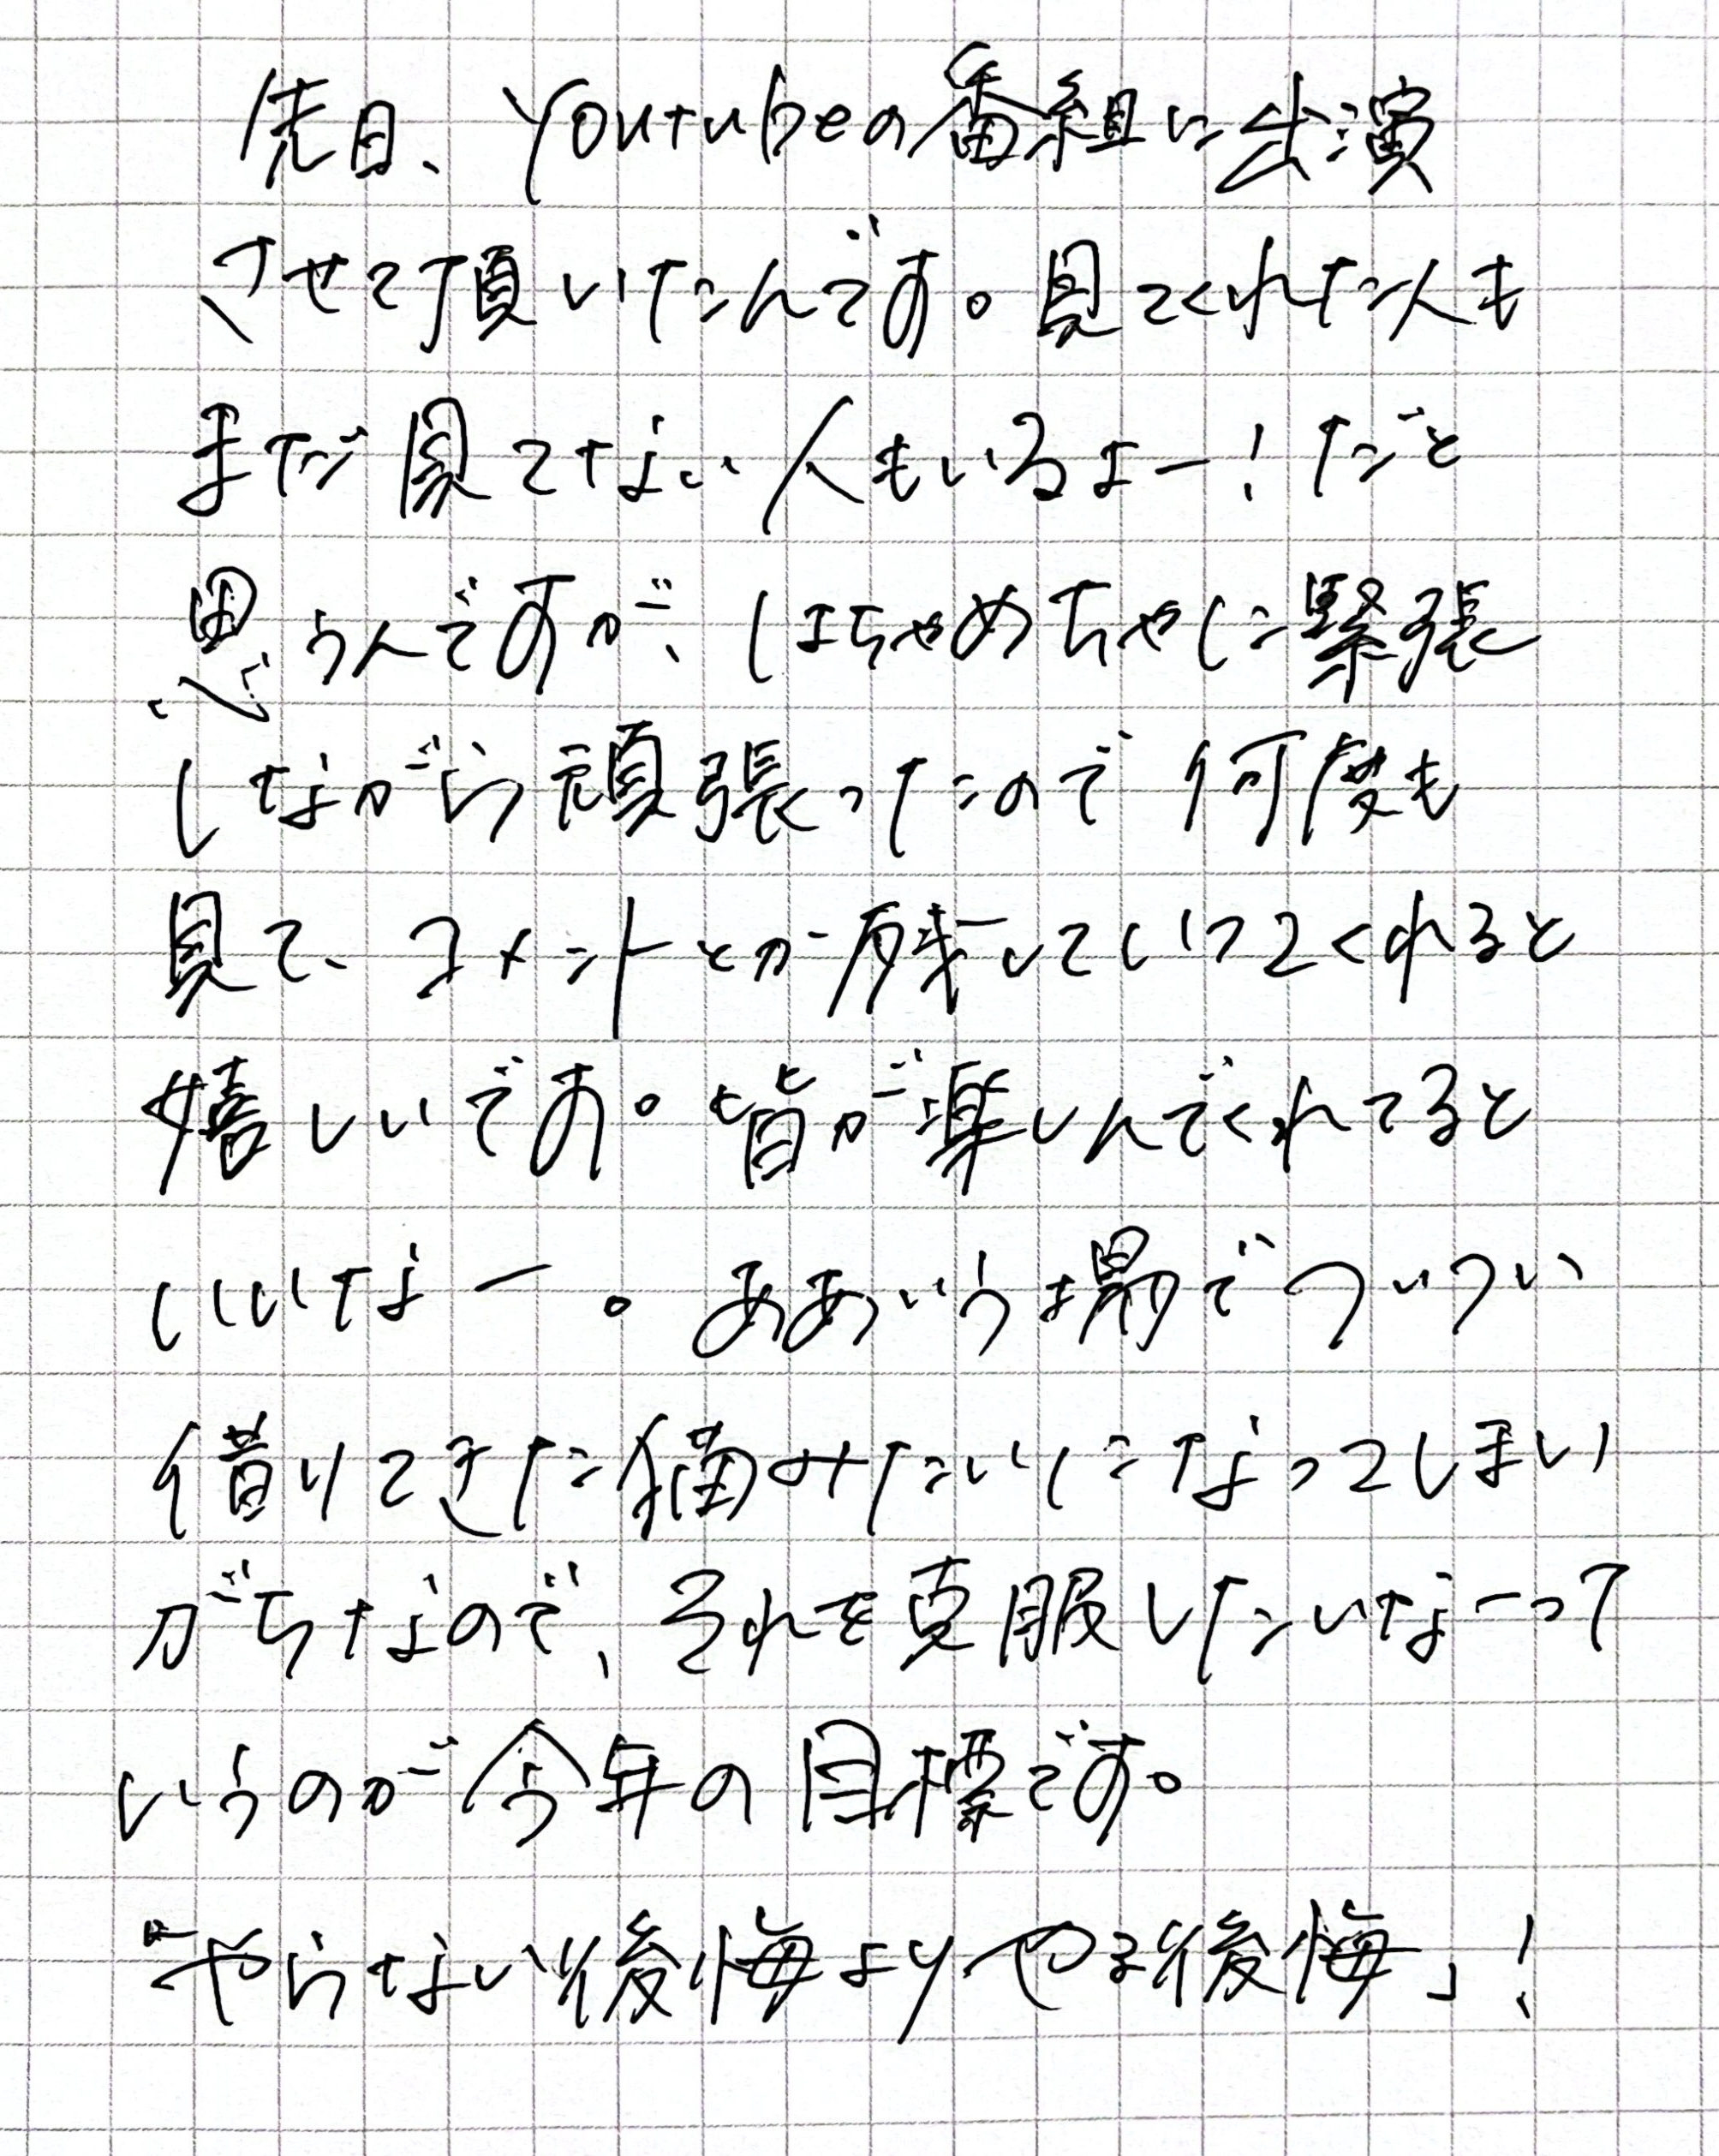 先日、Youtubeの番組に出演
させて頂いたんです。見てくれた人も
まだ見てない人もいるよー！だと
思うんですが、はちゃめちゃに緊張
しながら頑張ったので何度も
見て、コメントとか残していってくれると
嬉しいです。皆が楽しんでくれてると
いいなー。ああいう場でついつい
借りてきた猫みたいになってしまい
がちなので、それを克服したいなーって
いうのが今年の目標です。
『やらない後悔よりやる後悔』！